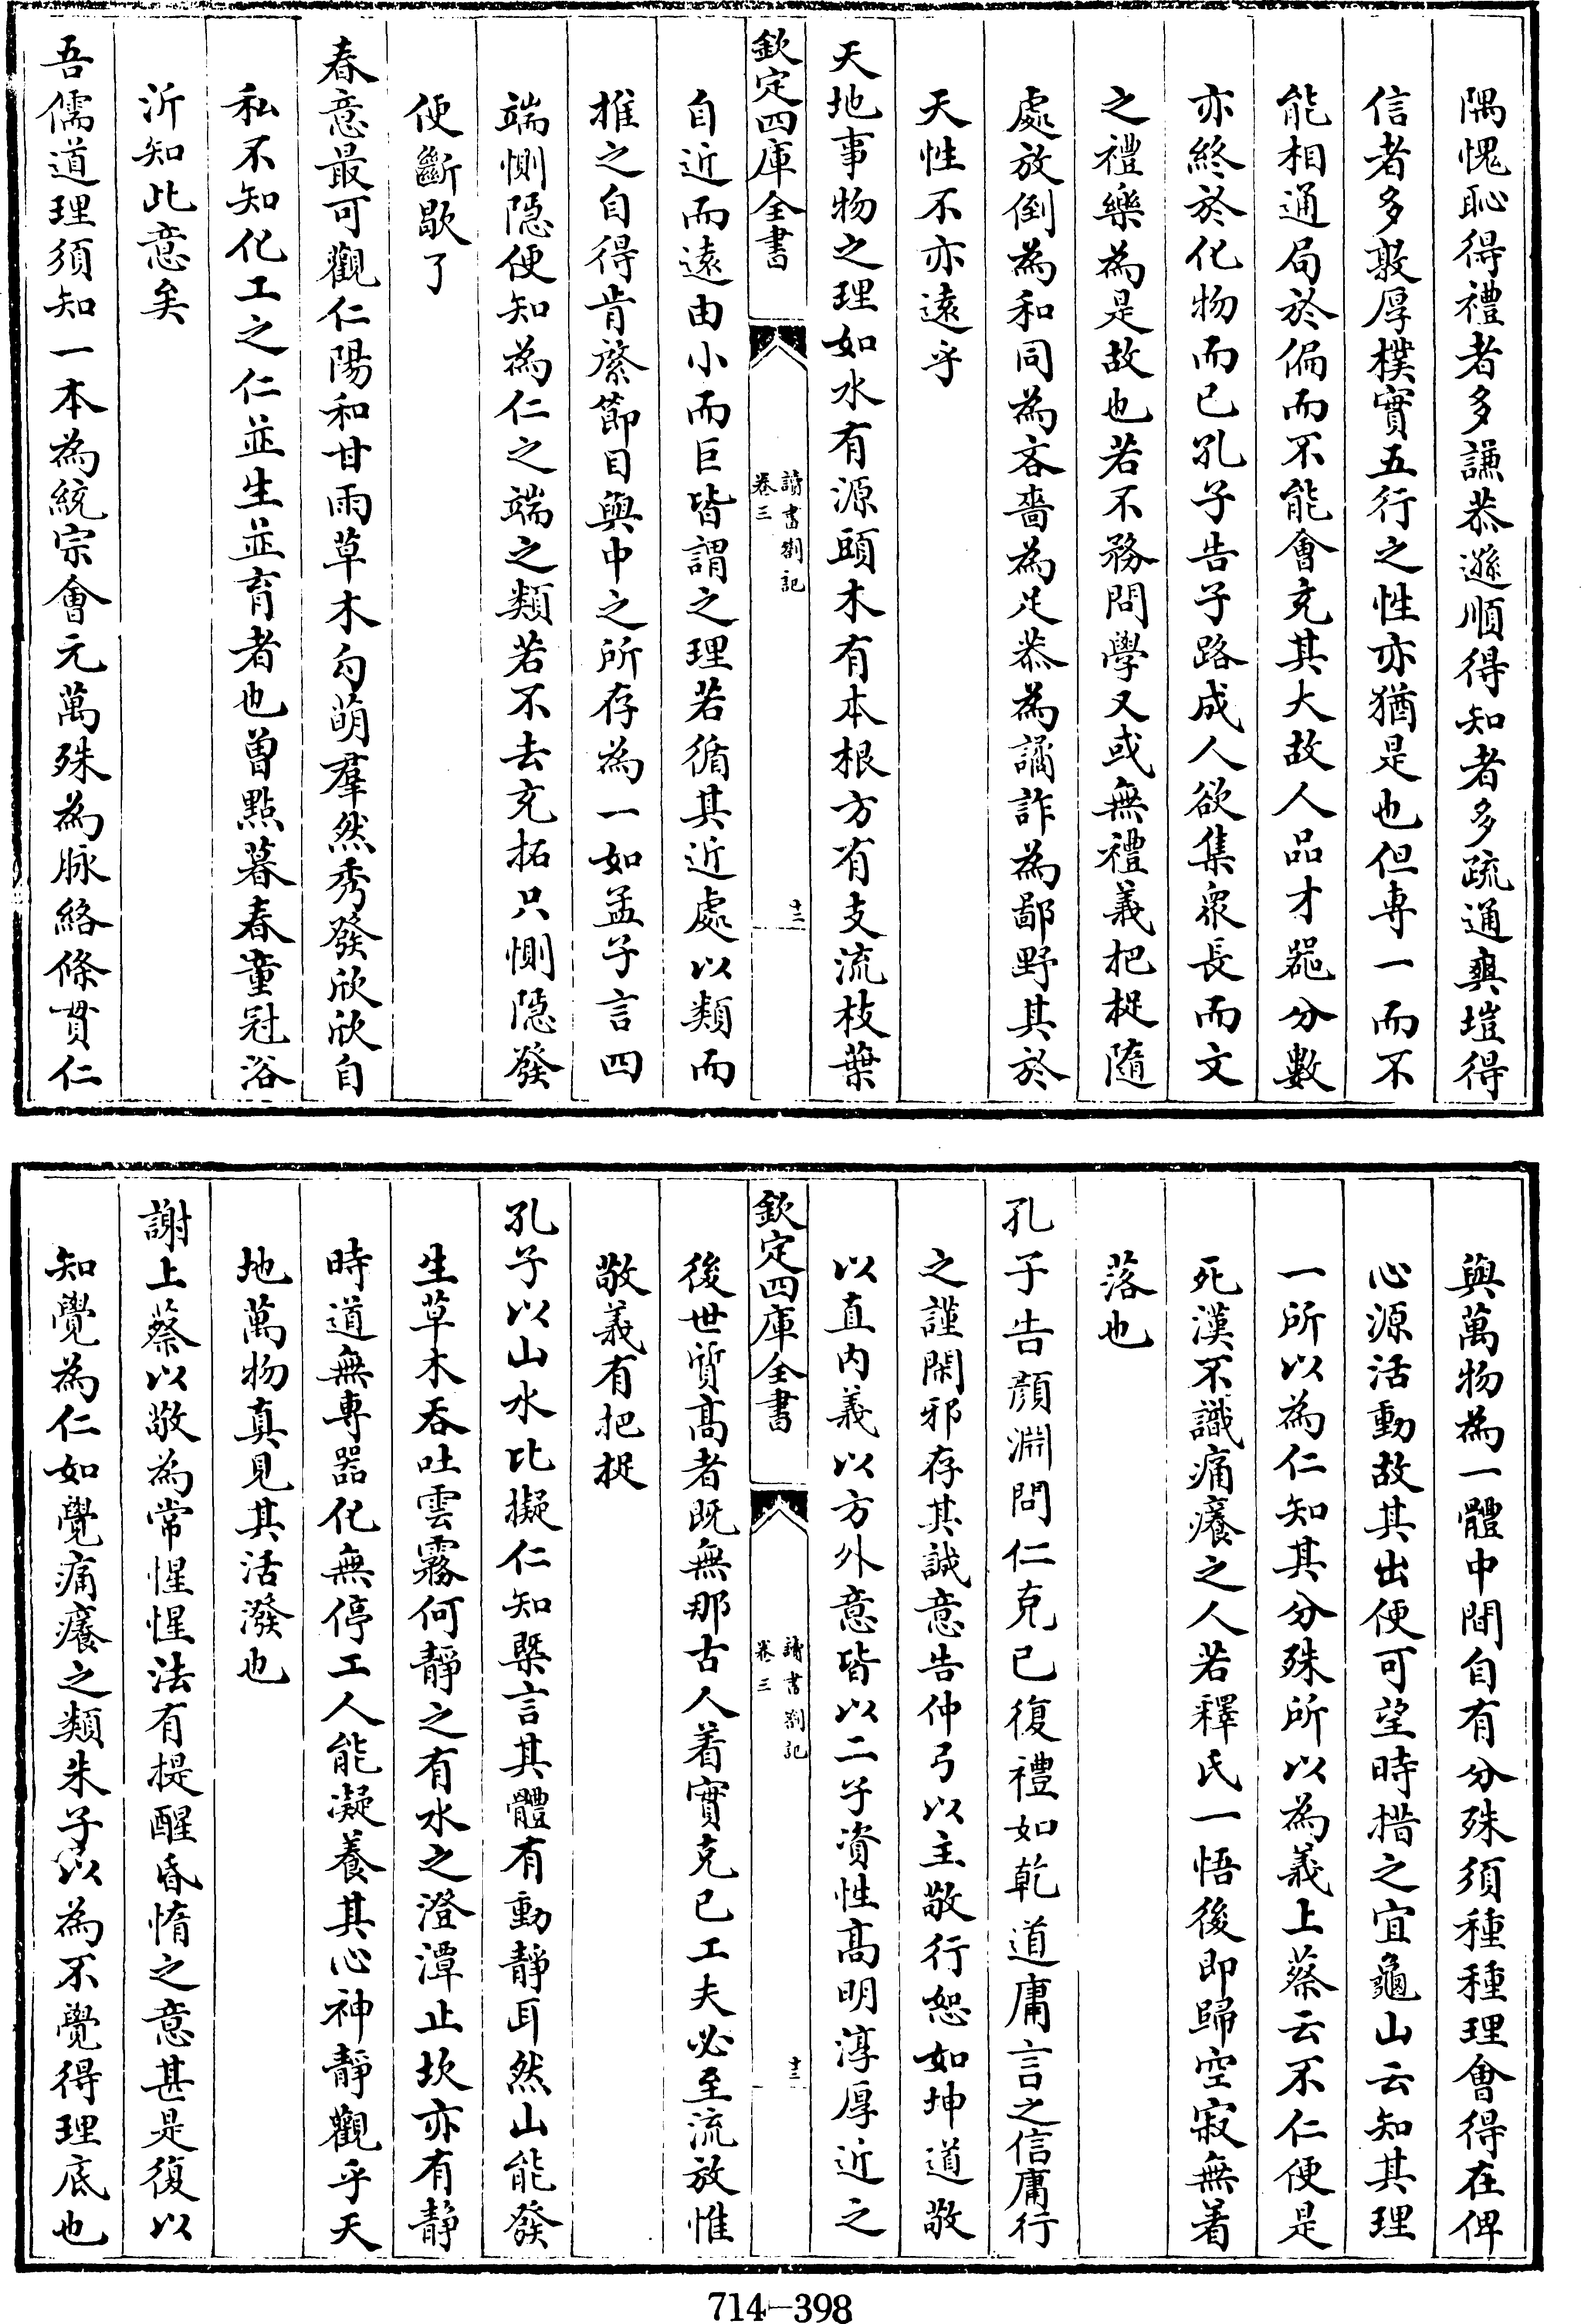 隅愧恥得禮者多謙恭遜順得知者多疏通爽塏得
信者多敦厚樸實五行之性亦猶是也但專一而不
能相通局於偏而不能會充其大故人品才器分數
亦終於化物而已孔子告子路成人欲集衆長而文
之禮樂為是故也若不務問學又或無禮義把捉隨
處放倒為和同為吝嗇為足恭為譎詐為鄙野其於
天性不亦遠乎
天地事物之理如水有源頭木有本根方有支流枝葉
欽定四庫全書
讀書劄記
卷三
十二
自近而遠由小而巨皆謂之理若循其近處以類而
推之自得肯綮節目與中之所存為一如孟子言四
端惻隱便知為仁之端之類若不去充拓只惻隱發
便斷歇了
春意最可觀仁陽和甘雨草木勾萌羣然秀發欣欣自
私不知化工之仁並生並育者也曾點暮春童冠浴
沂知此意矣
吾儒道理須知一本為統宗會元萬殊為脉絡條貫仁
與萬物為一體中間自有分殊須種種理會得在俾
心源活動故其出便可望時措之宜龜山云知其理
一所以為仁知其分殊所以為義上蔡云不仁便是
死漢不識痛癢之人若釋氏一悟後即歸空寂無着
落也
孔子告顔淵問仁克己復禮如乾道庸言之信庸行
之謹閑邪存其誠意告仲弓以主敬行恕如坤道敬
以直内義以方外意皆以二子資性髙明淳厚近之
欽定四庫全書
讀書劄記
卷三
十三
後世質髙者既無那古人着實克己工夫必至流放惟
敬義有把捉
孔子以山水比擬仁知槩言其體有動靜耳然山能發
生草木吞吐雲霧何靜之有水之澄潭止坎亦有静
時道無專器化無停工人能凝養其心神靜觀乎天
地萬物真見其活潑也
謝上蔡以敬為常惺惺法有提醒昏惰之意甚是復以
知覺為仁如覺痛癢之類朱子以為不覺得理底也
714-398